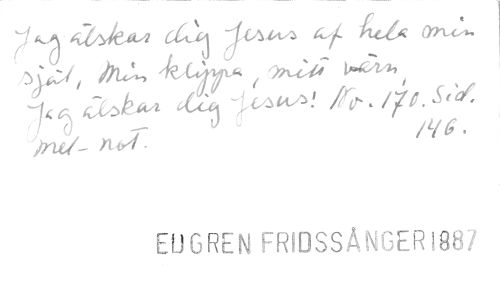 Jag älskar dig Jesus af hela min
själ, Min klippa, mitt värn,
Jag älskar dig Jesus! No. 170. Sid.
mel-not. 146.
EUGREN FRIDSSÅNGER 1887